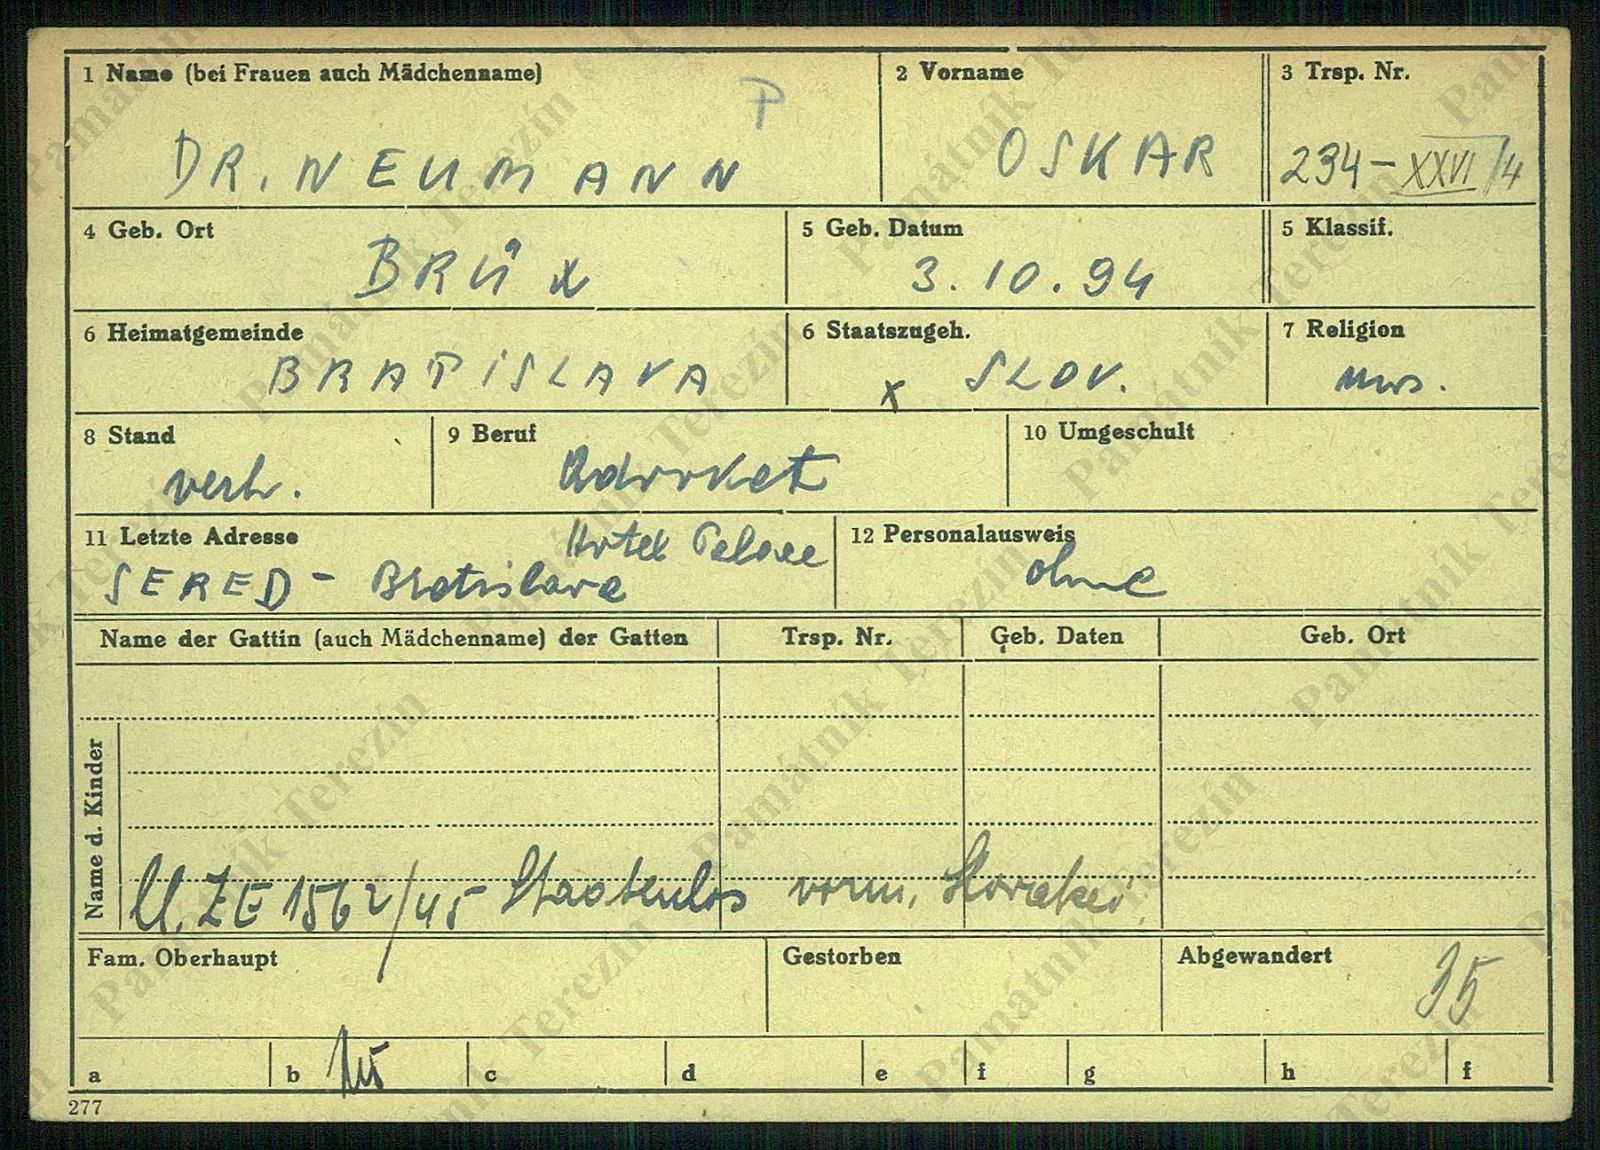 1 Name (bei Frauen auch Mädchenname)
P
DR. NEUMANN
2 Vorname
OSKAR
3 Trsp. Nr.
234-XXVI/4
4 Geb. Ort
BRÜX
5 Geb. Datum
3.10.94
5 Klassif.
6 Heimatgemeinde
BRATISLAVA
6 Staatszugeh.
x SLOV.
7 Religion
mos.
8 Stand
verh.
9 Beruf
Advokat
10 Umgeschult
11 Letzte Adresse
Hotel Palace
SERED - Bratislava
12 Personalausweis
ohne
Name der Gattin (auch Mädchenname) der Gatten
Trsp. Nr.
Geb. Daten
Geb. Ort
Name d. Kinder
ZE 1562/45 Staatenlos vorm. Slovakei
Fam. Oberhaupt
Gestorben
Abgewandert
35
a
b
c
d
e
f
g
h
f
277
Památník Terezín